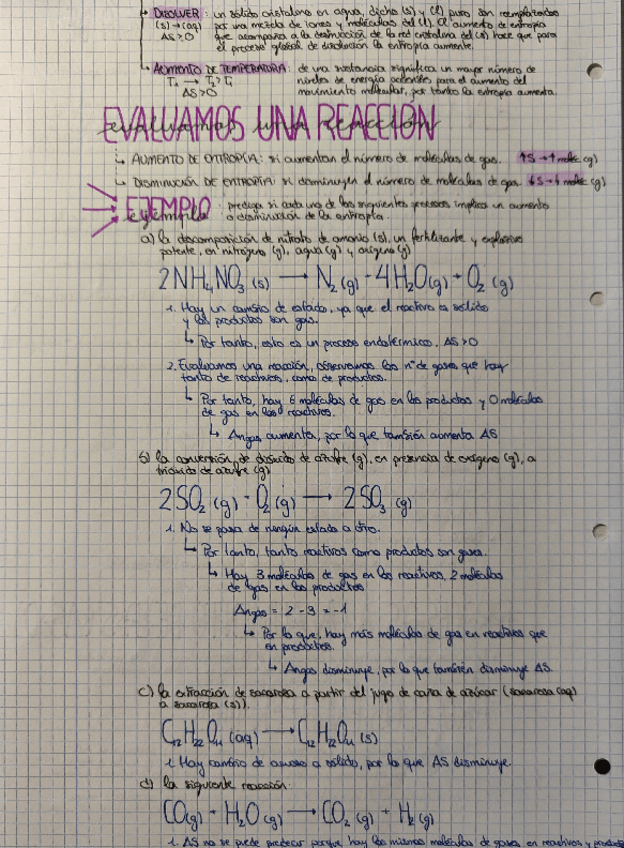 ↳ DISOLVER: un sólido cristalino en agua, dicho (s) y (l) puro son reemplazados
(s) → (aq) por una mezcla de iones y moléculas del (l). El aumento de entropía
ΔS>0 que acompaña a la destrucción de la red cristalina del (s) hace que para
el proceso global de disolución la entropía aumente.
↳ AUMENTO DE TEMPERATURA: de una sustancia significa un mayor número de
T₁ → T₂>T₁ niveles de energía accesibles para el aumento del
ΔS>0 movimiento molecular, por tanto la entropía aumenta.
EVALUAMOS UNA REACCIÓN
↳ AUMENTO DE ENTROPÍA: si aumentan el número de moléculas de gas. ↑S → ↑ moléc (g)
↳ DISMINUCIÓN DE ENTROPÍA: si disminuyen el número de moléculas de gas. ↓S → ↓ moléc (g)
EJEMPLO: prediga si cada uno de los siguientes procesos implica un aumento
ejemplo o disminución de la entropía.
a) la descomposición de nitrato de amonio (s), un fertilizante y explosivo
potente, en nitrógeno (g), agua (g) y oxígeno (g)
2NH₄NO₃ (s) → N₂ (g) + 4H₂O(g) + O₂ (g)
1. Hay un cambio de estado, ya que el reactivo es sólido
y los productos son gas.
↳ Por tanto, esto es un proceso endotérmico, ΔS>0
2. Evaluamos una reacción, observamos los nº de gases que hay
tanto de reactivos, como de productos.
↳ Por tanto, hay 5 moléculas de gas en los productos y 0 moléculas
de gas en los reactivos.
↳ Δngas aumenta, por lo que también aumenta ΔS
b) la conversión, de dióxido de azufre (g), en presencia de oxígeno (g), a
trióxido de azufre (g)
2SO₂ (g) + O₂ (g) → 2SO₃ (g)
1. No se pasa de ningún estado a otro.
↳ Por tanto, tanto reactivos como productos son gases.
↳ Hay 3 moléculas de gas en los reactivos, 2 moléculas
de gas en los productos
Δngas = 2 - 3 = -1
↳ Por lo que, hay más moléculas de gas en reactivos que
en productos.
↳ Δngas disminuye, por lo que también disminuye ΔS.
c) la extracción de sacarosa a partir del jugo de caña de azúcar (sacarosa (aq)
a sacarosa (s)).
C₁₂H₂₂O₁₁ (aq) → C₁₂H₂₂O₁₁ (s)
1. Hay cambio de acuoso a sólido, por lo que ΔS disminuye.
d) la siguiente reacción:
CO(g) + H₂O (g) → CO₂ (g) + H₂(g)
1. ΔS no se puede predecir porque hay las mismas moléculas de gases en reactivos y productos